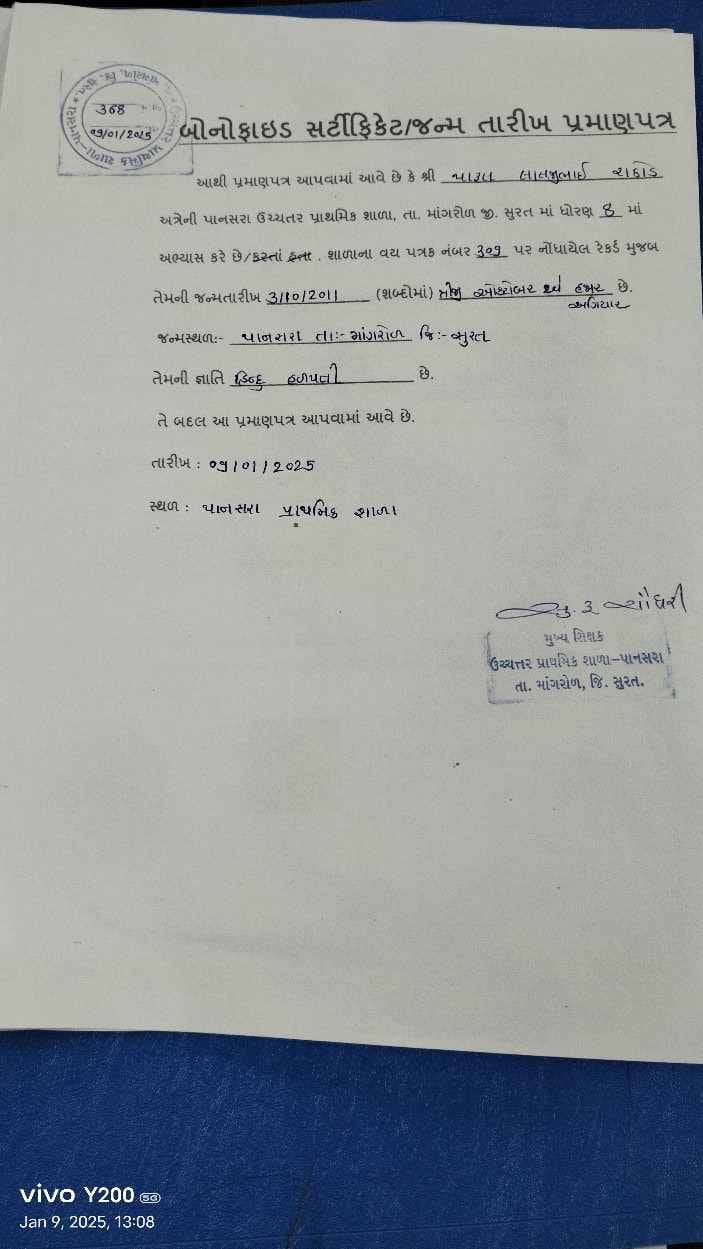 368
09/01/2025
બોનોફાઇડ સર્ટીફિકેટ/જન્મ તારીખ પ્રમાણપત્ર
આથી પ્રમાણપત્ર આપવામાં આવે છે કે શ્રી પારસ લાલજીભાઈ રાઠોડ
અત્રેની પાનસરા ઉચ્ચતર પ્રાથમિક શાળા, તા. માંગરોળ જી. સુરત માં ધોરણ 8 માં
અભ્યાસ કરે છે/કરતાં હતા. શાળાના વય પત્રક નંબર 309 પર નોંધાયેલ રેકર્ડ મુજબ
તેમની જન્મતારીખ 3/10/2011 (શબ્દોમાં) ત્રીજી ઓક્ટોબર બે હજાર છે.
અગિયાર
જન્મસ્થળ:- પાનસરા તા:- માંગરોળ જિ:- સુરત
તેમની જ્ઞાતિ હિન્દુ હળપતી છે.
તે બદલ આ પ્રમાણપત્ર આપવામાં આવે છે.
તારીખ : 09/01/2025
સ્થળ : પાનસરા પ્રાથમિક શાળા
ચૌધરી
મુખ્ય શિક્ષક
ઉચ્ચત્તર પ્રાથમિક શાળા-પાનસરા
તા. માંગરોળ, જિ. સુરત.
vivo Y200 5G
Jan 9, 2025, 13:08